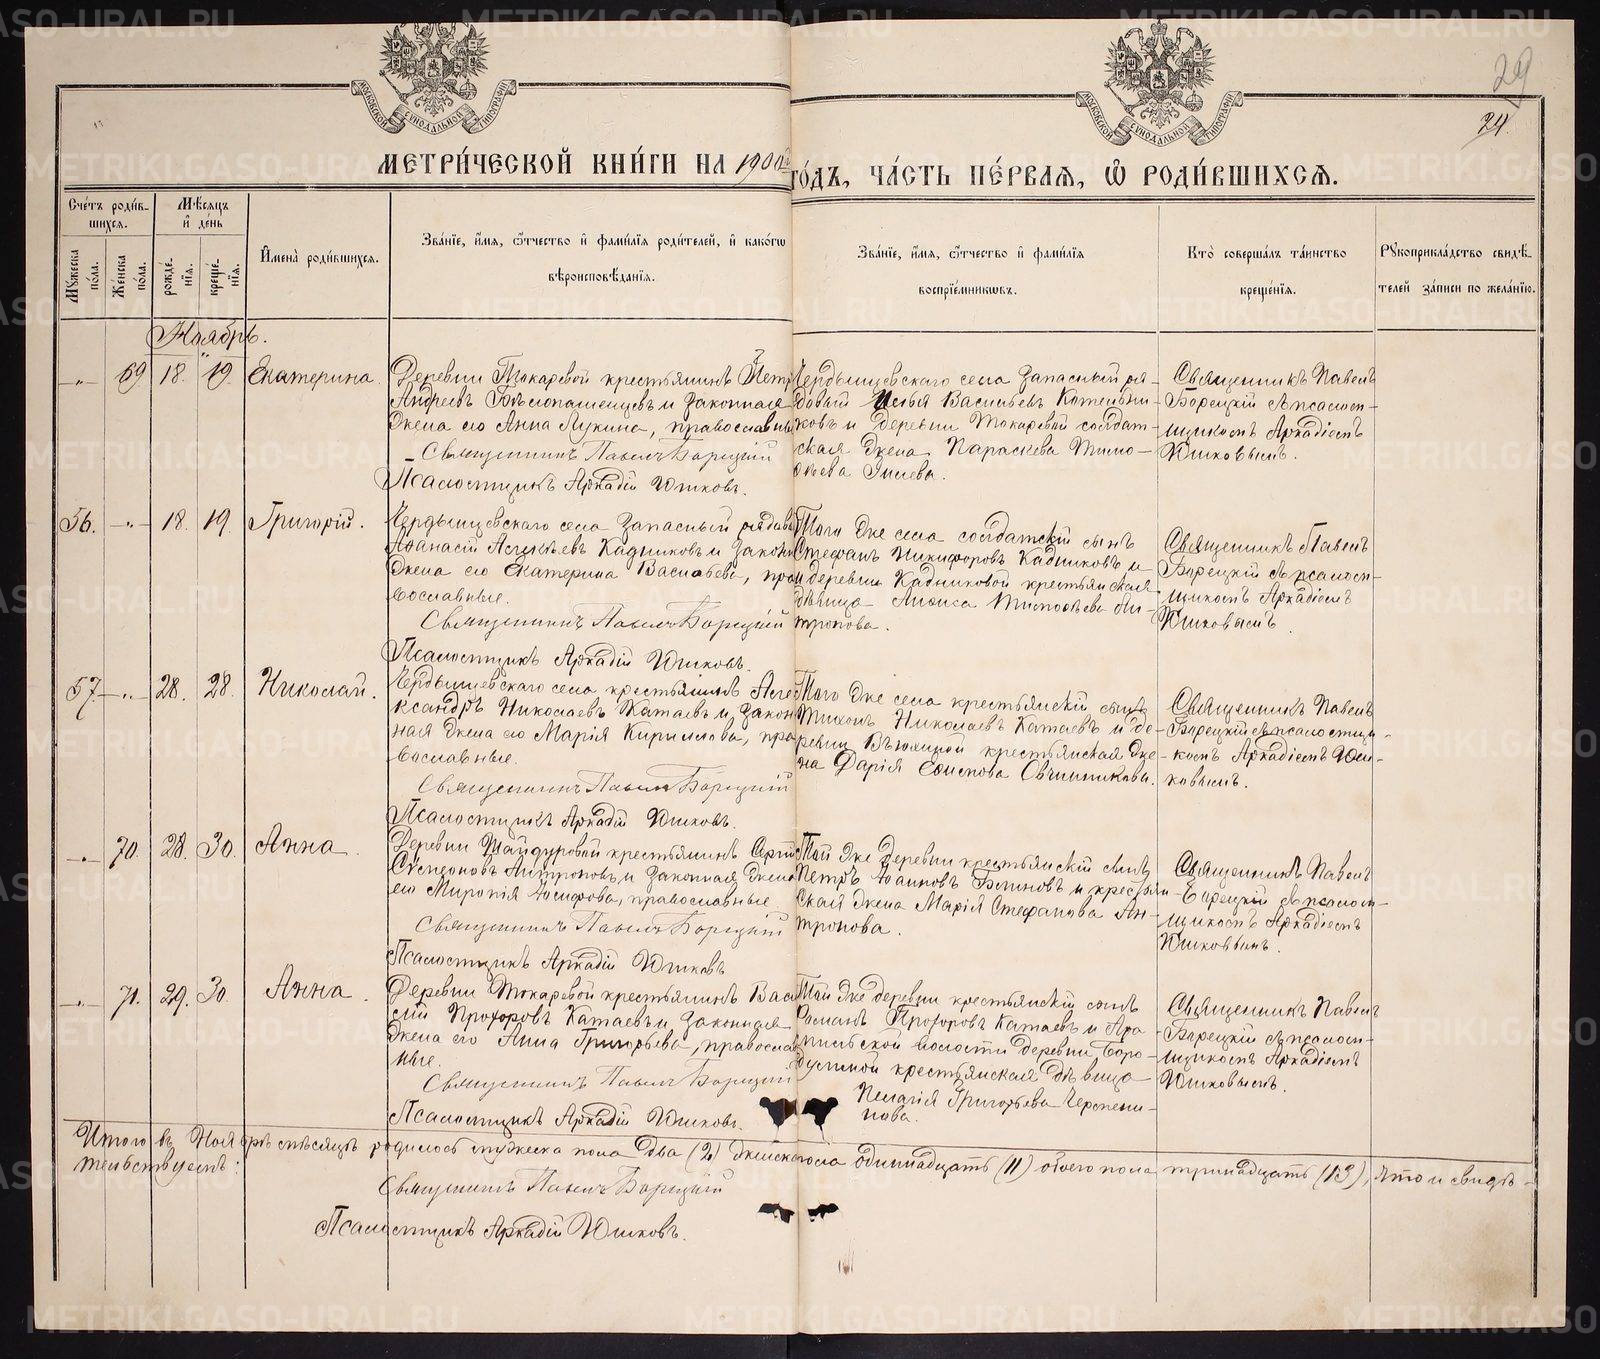 29
24.
МОСКОВСКОЙ СѴНОДАЛЬНОЙ ТИПОГРАФІИ
МОСКОВСКОЙ СѴНОДАЛЬНОЙ ТИПОГРАФІИ
МЕТРИ́ЧЕСКОЙ КНИ́ГИ НА 1900й
ГО́ДЪ, ЧА́СТЬ ПЕ́РВАѦ, Ѽ РОДИ́ВШИХСѦ.
Сче́тъ роди́в-
шихсѧ.
Мѣ́сѧцъ
и҆ де́нь
Мꙋ́жеска по́ла.
Же́нска по́ла.
рожде́-
нїѧ.
креще́-
нїѧ.
И҆мена̀ роди́вшихсѧ.
Зва́нїе, и҆́мѧ, ѻ҆́тчество и҆ фами́лїѧ роди́телей, и҆ како́гѡ
вѣроисповѣ́данїѧ.
Зва́нїе, и҆́мѧ, ѻ҆́тчество и҆ фами́лїѧ
воспрїе́мникѡвъ.
Кто̀ соверша́лъ та́инство
креще́нїѧ.
Рꙋкоприкла́дство свидѣ́-
телей за́писи по жела́нїю.
Ноябрь.
-"- 69 18. 19. Екатерина.
Деревни Токаревой крестьянинъ Петръ
Андреевъ Бѣлопашенцевъ и законная
жена его Анна Лукина, православные
Священникъ Павелъ Борецкій
Псаломщикъ Аркадій Юшковъ.
Чердынцевскаго села запасный ря-
довый Илья Васильевъ Котельни-
ковъ и деревни Токаревой солдат-
ская жена Параскева Тимо-
фѣева
Священникъ Павелъ
Борецкій съ псалом-
щикомъ Аркадіемъ
Юшковымъ.
56. -"- 18. 19. Григорій.
Чердынцевскаго села запасный рядовый
Афанасій Алексѣевъ Кадниковъ и законная
жена его Екатерина Васильева, пра-
вославные.
Священникъ Павелъ Борецкій
Псаломщикъ Аркадій Юшковъ.
Того же села солдатскій сынъ
Стефанъ Никифоровъ Кадниковъ и
деревни Кадниковой крестьянская
дѣвица Анфиса Тимофѣева Ан-
тропова.
Священникъ Павелъ
Борецкій съ псалом-
щикомъ Аркадіемъ
Юшковымъ.
57. -"- 28. 28. Николай.
Чердынцевскаго села крестьянинъ Але-
ксандръ Николаевъ Катаевъ и закон-
ная жена его Марія Кириллова, пра-
вославные.
Священникъ Павелъ Борецкій
Псаломщикъ Аркадій Юшковъ.
Того же села крестьянскій сынъ
Тихонъ Николаевъ Катаевъ и де-
ревни крестьянская же-
на Дарія Овчинникова.
Священникъ Павелъ
Борецкій съ псаломщи-
комъ Аркадіемъ Юш-
ковымъ.
-"- 70. 28. 30. Анна.
Деревни Шайдуровой крестьянинъ Сергій
Антроповъ и законная жена
его Миропія Іосифова, православные
Священникъ Павелъ Борецкій
Псаломщикъ Аркадій Юшковъ
Той же деревни крестьянскій сынъ
Петръ Іоанновъ Блиновъ и крестьян-
ская жена Марія Стефанова Ан-
тропова.
Священникъ Павелъ
Борецкій съ псалом-
щикомъ Аркадіемъ
Юшковымъ.
-"- 71. 29. 30. Анна.
Деревни Токаревой крестьянинъ Васи-
лій Прохоровъ Катаевъ и законная
жена его Анна Григорьева, православ-
ные.
Священникъ Павелъ Борецкій
Псаломщикъ Аркадій Юшковъ.
Той же деревни крестьянскій сынъ
Романъ Прохоровъ Катаевъ и Ара-
мильской волости деревни Боро-
дулиной крестьянская дѣвица
Пелагія Григорьева Черепа-
нова.
Священникъ Павелъ
Борецкій съ псалом-
щикомъ Аркадіемъ
Юшковымъ.
Итого въ Ноябрѣ мѣсяцѣ родилось мужеска пола два (2) женскаго пола одиннадцать (11) обоего пола тринадцать (13), что и свидѣ-
тельствуемъ:
Священникъ Павелъ Борецкій
Псаломщикъ Аркадій Юшковъ.
METRIKI.GASO-URAL.RU